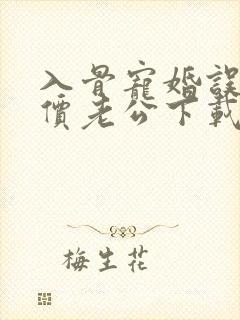 入骨寵婚誤
價老公下載
梅生花